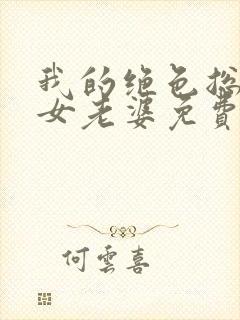 我的绝色总
女老婆免費
何雲喜